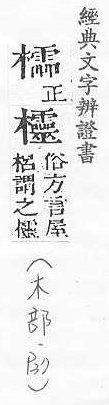 經典文字辨證書
檽 正
俗方言屋
梠謂之
(木部